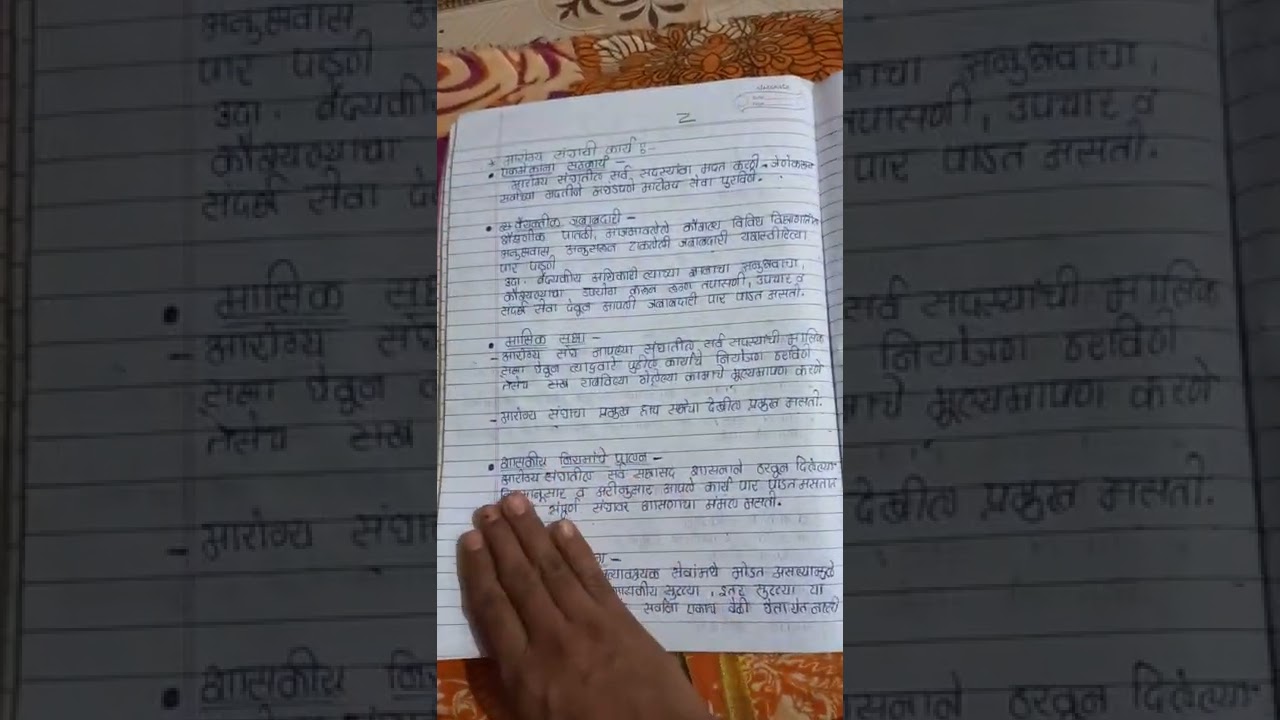 classmate
2
* आरोग्य संघाची कार्य :-
• एकमेकांना सहकार्य -
आरोग्य संघातील सर्व सदस्यांना मदत करणे,
सांघिक पद्धतीने आरोग्य सेवा पुरविणे.
• जबाबदारी -
शैक्षणिक पातळी, कौशल्य विविध
अनुभवास अनुसरून टाकलेली जबाबदारी यशस्वीरित्या
पार पाडणे
उदा. वैद्यकीय अधिकारी त्याच्या ज्ञानाचा अनुभवाचा,
कौशल्याचा उपयोग करून रुग्ण तपासणी, उपचार व
संदर्भ सेवा देवून आपली जबाबदारी पार पाडत असतो.
• मासिक सभा -
- आरोग्य संघ आपल्या संघातील सर्व सदस्यांची मासिक
सभा घेवून त्याद्वारे पुढील कार्याचे नियोजन ठरविणे
तसेच सध्या राबविल्या गेलेल्या कामाचे मूल्यमापण करणे
- आरोग्य संघाचा प्रमुख हाच सभेचा देखील प्रमुख असतो.
• शासकीय नियमांचे पालन -
आरोग्य संघातील सर्व सभासद शासनाने ठरवून दिलेल्या
व आपले कार्य पार पाडत असतात
संपूर्ण संघावर शासनाचा असतो.
अत्यावश्यक सेवांमधे मोडत असल्यामुळे
सुट्ट्या, इतर सुट्ट्या या
सर्वांना एकाच वेळी घेता येत नाही